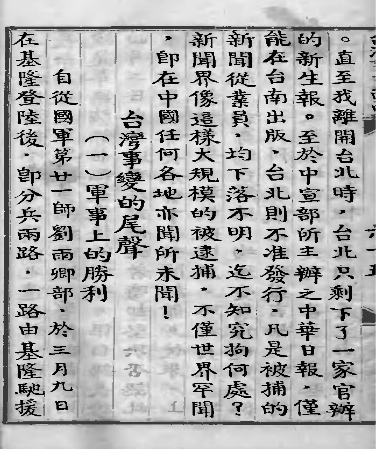 。直至我離開台北時，台北只剩下了一家官辦
的新生報。至於中宣部所主辦之中華日報，僅
能在台南出版，台北則不准發行。凡是被捕的
新聞從業員，均下落不明，迄不知究拘何處？
新聞界像這樣大規模的被逮捕，不僅世界罕聞
，卽在中國任何各地亦聞所未聞！
台灣事變的尾聲
（一）軍事上的勝利
自從國軍第廿一師劉雨卿部，於三月九日
在基隆登陸後，卽分兵兩路，一路由基隆馳援